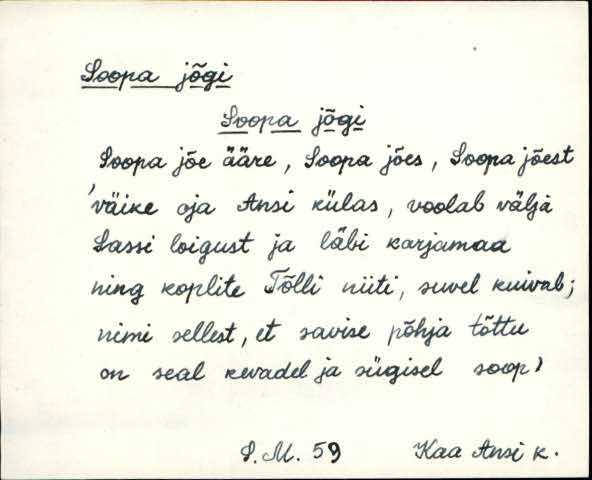 Soopa jõgi
Soopa jõgi
Soopa jõe ääre, Soopa jões, Soopa jõest
'väike oja Ansi külas, voolab välja
Sassi loigust ja läbi karjamaa
ning koplite Tõlli niiti, suvel kuivab;
nimi sellest, et savise põhja tõttu
on seal kevadel ja sügisel soop'
S.M. 59 Kaa Ansi k.